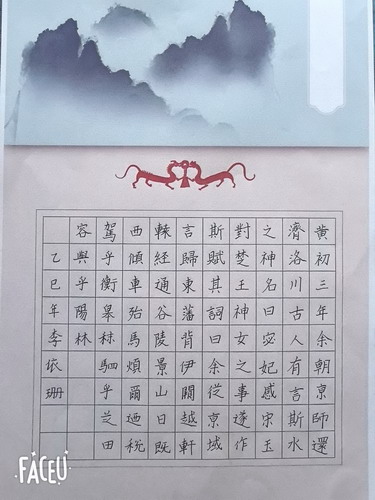 黄初三年余朝京師還
濟洛川古人有言斯水
之神名曰宓妃感宋玉
對楚王神女之事遂作
斯賦其詞曰余從京域
言歸東藩背伊闕越軒
轅經通谷陵景山日既
西傾車殆馬煩爾迺稅
駕乎衡皋秣駟乎芝田
容與乎陽林
乙巳年李依珊
FACEU